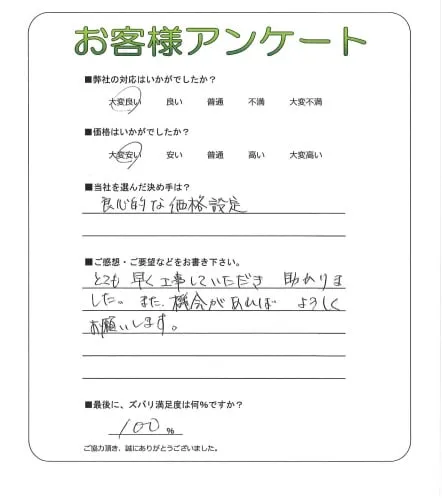 お客様アンケート
■弊社の対応はいかがでしたか?
大変良い 良い 普通 不満 大変不満
■価格はいかがでしたか?
大変安い 安い 普通 高い 大変高い
■当社を選んだ決め手は?
良心的な価格設定
■ご感想・ご要望などをお書き下さい。
とても早く工事していただき 助かりま
した。また、機会があれば よろしく
お願いします。
■最後に、ズバリ満足度は何%ですか?
100 %
ご協力頂き、誠にありがとうございました。